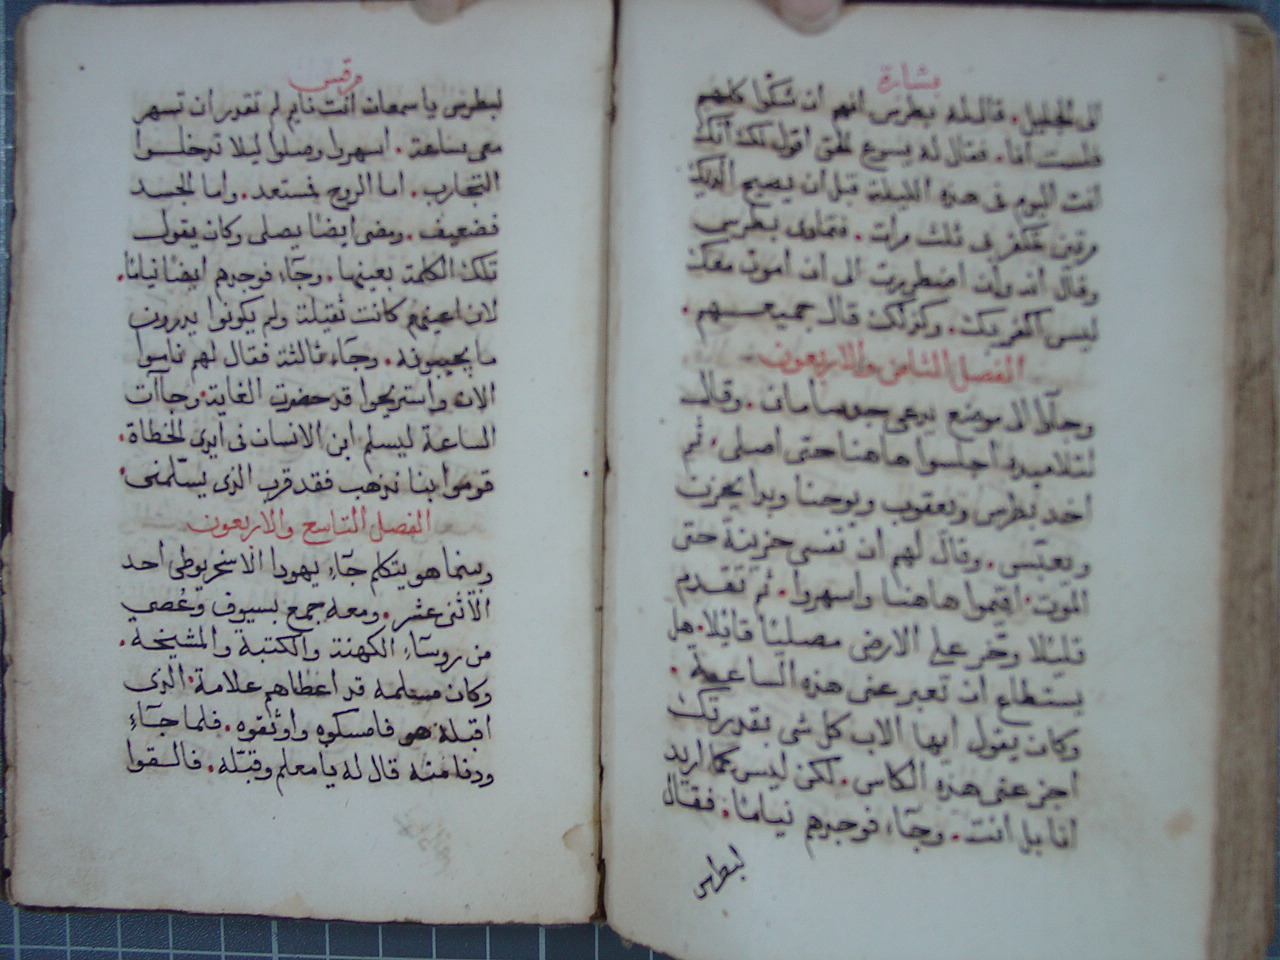 بشارة
الى الجليل. قال له بطرس انهم ان شكوا كلهم
فلست انا. فقال له يسوع الحق اقول لك انك
انت اليوم فى هذه الليلة قبل ان يصيح الديك
مرتين تنكرنى ثلث مرات. فتمادى بطرس
وقال انه وان اضطررت الى ان اموت معك
ليس انكرك. وكذلك قال جميعهم.
الفصل الثامن والاربعون
وجاوا الى موضع يدعى جدسامانى. وقال
لتلاميذه اجلسوا هاهنا حتى اصلى. ثم
اخذ بطرس ويعقوب ويوحنا وبدا يحزن
ويعبّس. وقال لهم ان نفسى حزينة حتى
الموت. اقيموا هاهنا واسهروا. ثم تقدم
قليلا وخّر على الارض مصليًا قايلا. هل
يستطاع ان تعبر عنى هذه الساعة.
وكان يقول ايها الاب كل شى بقدرتك
اجز عنى هذه الكاس. لكن ليس كما اريد
انا بل انت. وجآء فوجدهم نيامًا. فقال
لبطرس
مرقس
لبطرس يا سمعان انت نايم لم تقدر ان تسهر
معى ساعة. اسهروا وصلوا ليلا تدخلوا
التجارب. اما الروح فمستعد. واما الجسد
فضعيف. ومضى ايضا يصلى وكان يقول
تلك الكلمة بعينها. وجآء فوجدهم ايضًا نيامًا.
لان اعينهم كانت ثقيلة ولم يكونوا يدرون
ما يجيبونه. وجآء ثالثة فقال لهم ناموا
الان واستريحوا قد حضرت الغاية. وجاآت
الساعة ليسلم ابن الانسان فى ايدى الخطاة.
قوموا بنا نذهب فقد قرب الذى يسلمنى.
الفصل التاسع والاربعون
وبينما هو يتكلم جآء يهودا الاسخريوطى احد
الاثنى عشر. ومعه جمع بسيوف وعُصي
من روسآء الكهنة والكتبة والمشيخة.
وكان مسلمه قد اعطاهم علامة. الذى
اقبله هو فامسكوه واوثقوه. فلما جآء
ودنا منه قال له يا معلم وقبّله. فالقوا